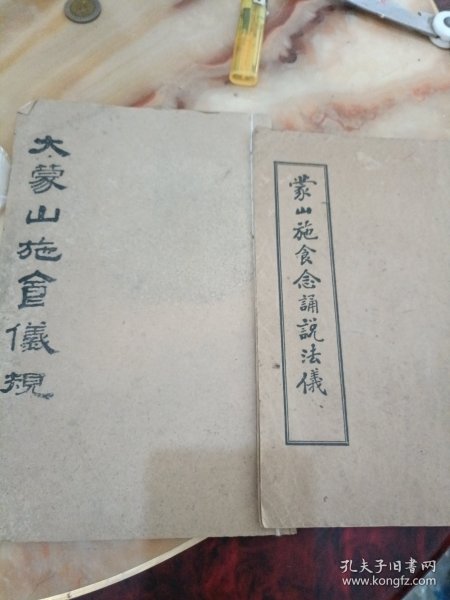 大蒙山施食儀規
蒙山施食念誦說法儀
孔夫子旧书网
www.kongfz.com